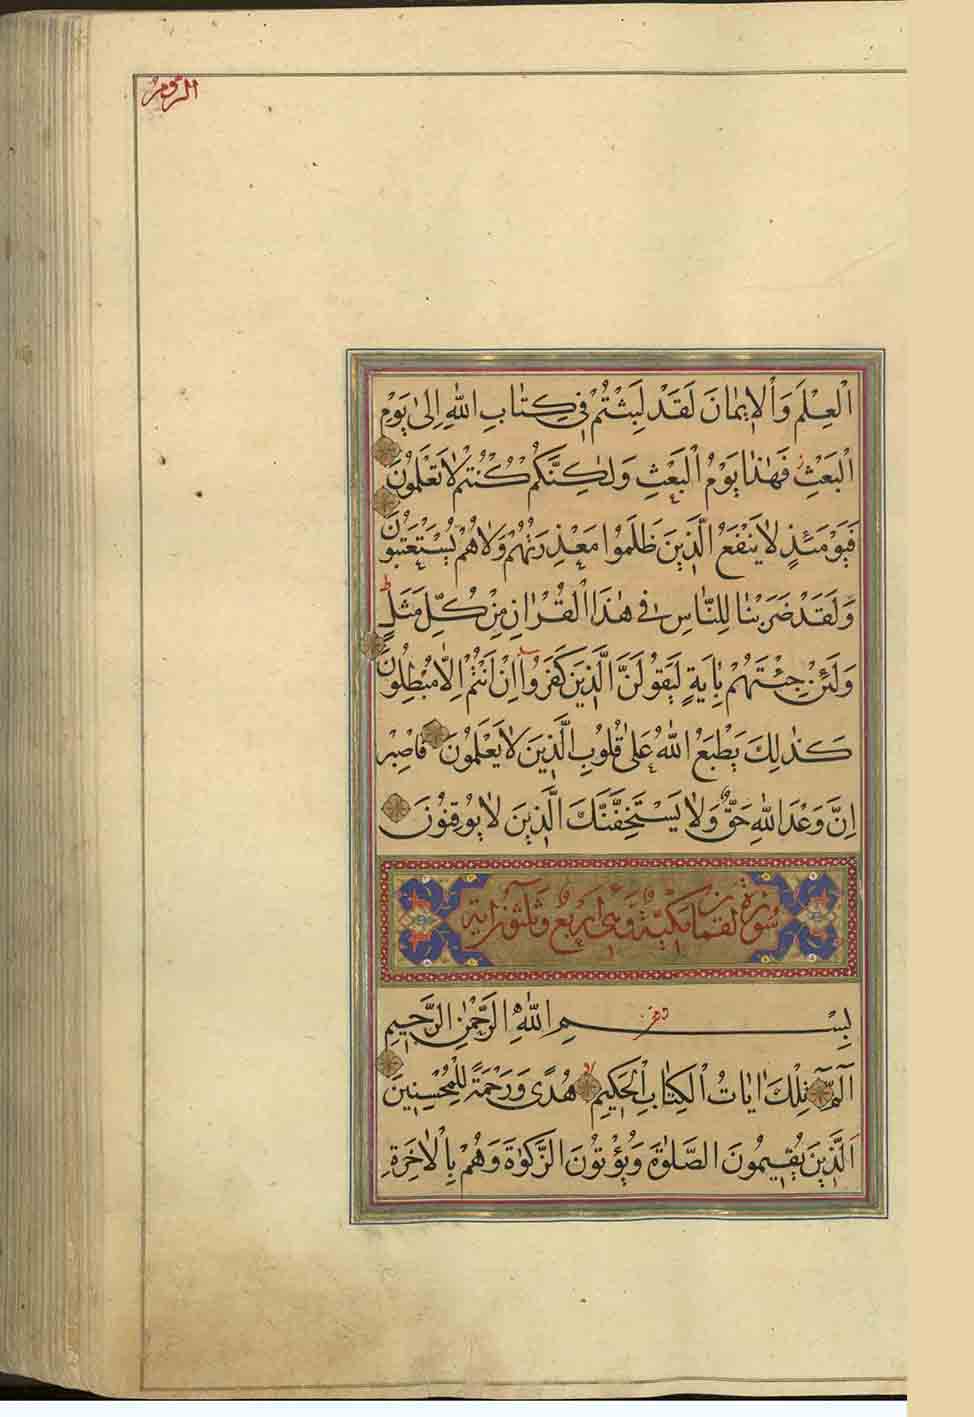 الروم
الْعِلْمَ وَالْاِيمَانَ لَقَدْ لَبِثْتُمْ فِي كِتَابِ اللّٰهِ اِلٰى يَوْمِ
الْبَعْثِ فَهٰذَا يَوْمُ الْبَعْثِ وَلٰكِنَّكُمْ كُنْتُمْ لَا تَعْلَمُونَ
فَيَوْمَئِذٍ لَا يَنْفَعُ الَّذِينَ ظَلَمُوا مَعْذِرَتُهُمْ وَلَا هُمْ يُسْتَعْتَبُونَ
وَلَقَدْ ضَرَبْنَا لِلنَّاسِ فِي هٰذَا الْقُرْاٰنِ مِنْ كُلِّ مَثَلٍ
وَلَئِنْ جِئْتَهُمْ بِاٰيَةٍ لَيَقُولَنَّ الَّذِينَ كَفَرُوا اِنْ اَنْتُمْ اِلَّا مُبْطِلُونَ
كَذٰلِكَ يَطْبَعُ اللّٰهُ عَلٰى قُلُوبِ الَّذِينَ لَا يَعْلَمُونَ فَاصْبِرْ
اِنَّ وَعْدَ اللّٰهِ حَقٌّ وَلَا يَسْتَخِفَّنَّكَ الَّذِينَ لَا يُوقِنُونَ
سورة لقمان مكية وهي اربع وثلثون اية
بِسْمِ اللّٰهِ الرَّحْمٰنِ الرَّحِيمِ
الٓمٓ تِلْكَ اٰيَاتُ الْكِتَابِ الْحَكِيمِ هُدًى وَرَحْمَةً لِلْمُحْسِنِينَ
اَلَّذِينَ يُقِيمُونَ الصَّلٰوةَ وَيُؤْتُونَ الزَّكٰوةَ وَهُمْ بِالْاٰخِرَةِ